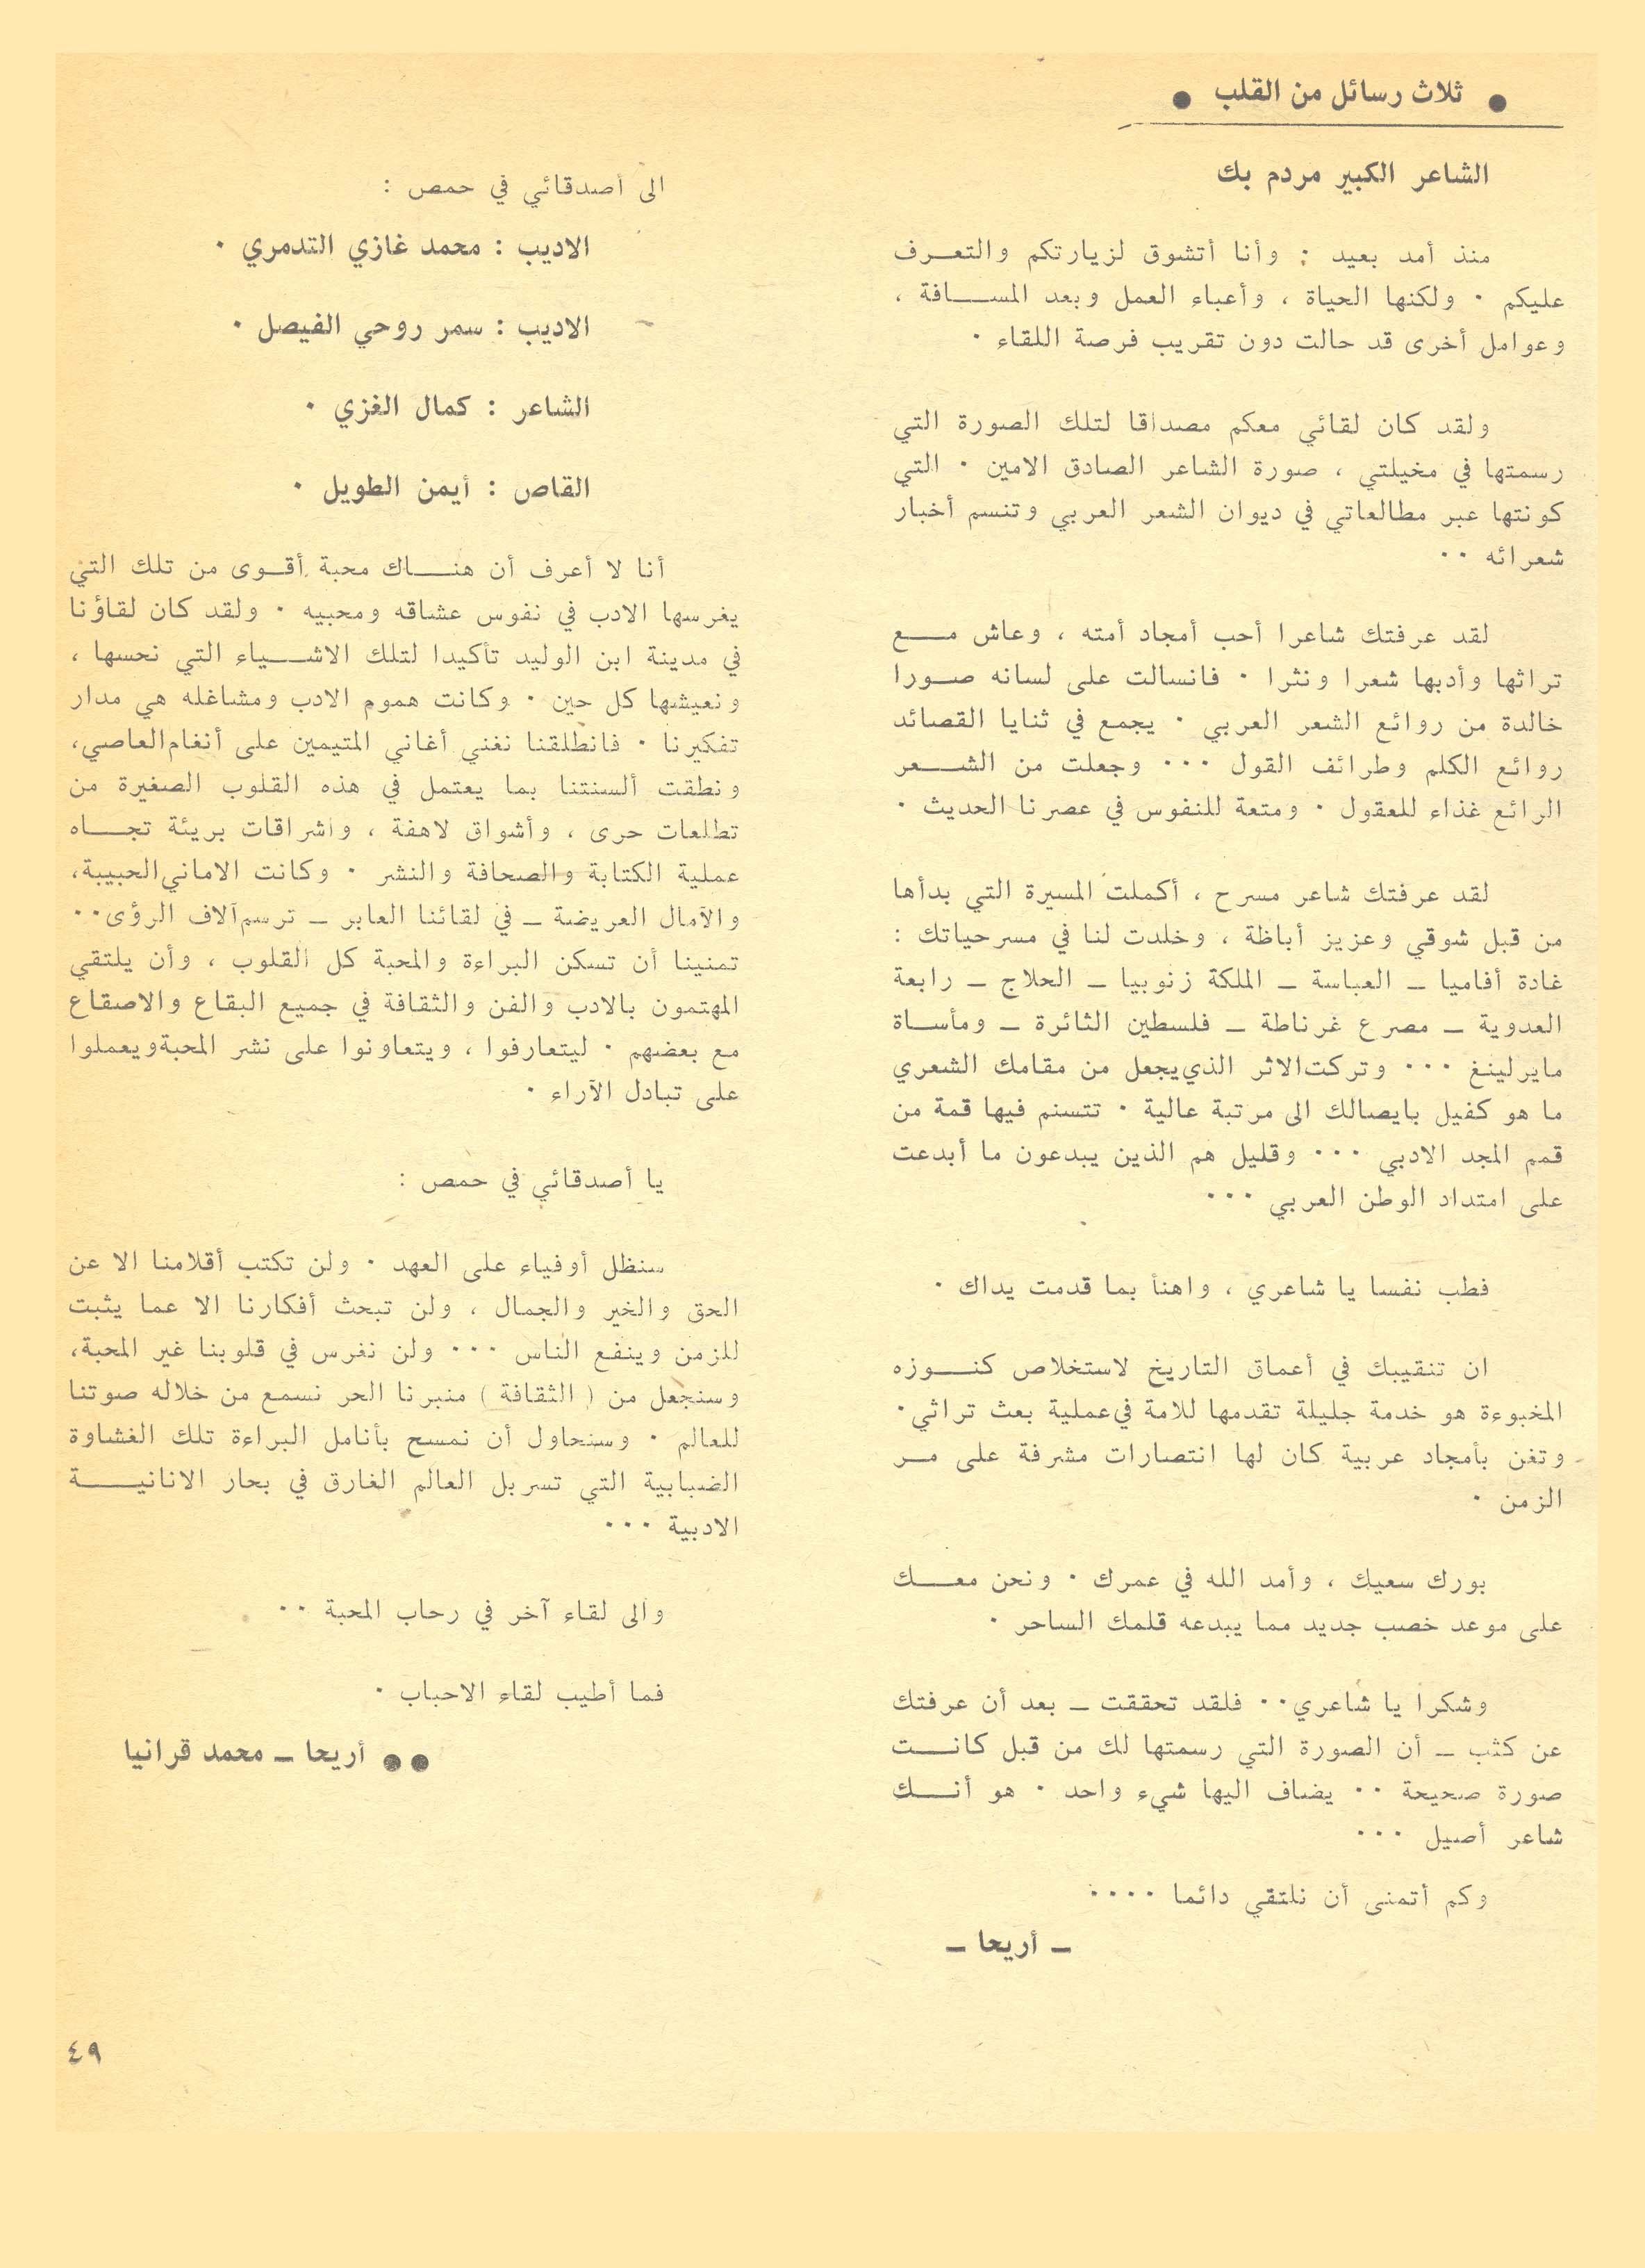 ● ثلاث رسائل من القلب ●
الشاعر الكبير مردم بك
منذ أمد بعيد : وأنا أتشوق لزيارتكم والتعرف
عليكم . ولكنها الحياة ، وأعباء العمل وبعد المسافة ،
وعوامل أخرى قد حالت دون تقريب فرصة اللقاء .
ولقد كان لقائي معكم مصداقا لتلك الصورة التي
رسمتها في مخيلتي ، صورة الشاعر الصادق الامين . التي
كونتها عبر مطالعاتي في ديوان الشعر العربي وتنسم أخبار
شعرائه ..
لقد عرفتك شاعرا أحب أمجاد أمته ، وعاش مع
تراثها وأدبها شعرا ونثرا . فانسالت على لسانه صورا
خالدة من روائع الشعر العربي . يجمع في ثنايا القصائد
روائع الكلم وطرائف القول ... وجعلت من الشعر
الرائع غذاء للعقول . ومتعة للنفوس في عصرنا الحديث .
لقد عرفتك شاعر مسرح ، أكملت المسيرة التي بدأها
من قبل شوقي وعزيز أباظة ، وخلدت لنا في مسرحياتك :
غادة أفاميا ــ العباسة ــ الملكة زنوبيا ــ الحلاج ــ رابعة
العدوية ــ مصرع غرناطة ــ فلسطين الثائرة ــ ومأساة
مايرلينغ ... وتركت الاثر الذي يجعل من مقامك الشعري
ما هو كفيل بايصالك الى مرتبة عالية . تتسنم فيها قمة من
قمم المجد الادبي ... وقليل هم الذين يبدعون ما أبدعت
على امتداد الوطن العربي ...
فطب نفسا يا شاعري ، واهنأ بما قدمت يداك .
ان تنقيبك في أعماق التاريخ لاستخلاص كنوزه
المخبوءة هو خدمة جليلة تقدمها للامة في عملية بعث تراثي .
وتغن بأمجاد عربية كان لها انتصارات مشرفة على مر
الزمن .
بورك سعيك ، وأمد الله في عمرك . ونحن معك
على موعد خصب جديد مما يبدعه قلمك الساحر .
وشكرا يا شاعري .. فلقد تحققت ــ بعد أن عرفتك
عن كثب ــ أن الصورة التي رسمتها لك من قبل كانت
صورة صحيحة .. يضاف اليها شيء واحد . هو أنك
شاعر أصيل ...
وكم أتمنى أن نلتقي دائما ....
ــ أريحا ــ
الى أصدقائي في حمص :
الاديب : محمد غازي التدمري .
الاديب : سمر روحي الفيصل .
الشاعر : كمال الغزي .
القاص : أيمن الطويل .
أنا لا أعرف أن هناك محبة أقوى من تلك التي
يغرسها الادب في نفوس عشاقه ومحبيه . ولقد كان لقاؤنا
في مدينة ابن الوليد تأكيدا لتلك الاشياء التي نحسها ،
ونعيشها كل حين . وكانت هموم الادب ومشاغله هي مدار
تفكيرنا . فانطلقنا نغني أغاني المتيمين على أنغام العاصي،
ونطقت ألسنتنا بما يعتمل في هذه القلوب الصغيرة من
تطلعات حرى ، وأشواق لاهفة ، واشراقات بريئة تجاه
عملية الكتابة والصحافة والنشر . وكانت الاماني الحبيبة،
والآمال العريضة ــ في لقائنا العابر ــ ترسم آلاف الرؤى ..
تمنينا أن تسكن البراءة والمحبة كل القلوب ، وأن يلتقي
المهتمون بالادب والفن والثقافة في جميع البقاع والاصقاع
مع بعضهم . ليتعارفوا ، ويتعاونوا على نشر المحبة ويعملوا
على تبادل الآراء .
يا أصدقائي في حمص :
سنظل أوفياء على العهد . ولن تكتب أقلامنا الا عن
الحق والخير والجمال ، ولن تبحث أفكارنا الا عما يثبت
للزمن وينفع الناس ... ولن نغرس في قلوبنا غير المحبة،
وسنجعل من ( الثقافة ) منبرنا الحر نسمع من خلاله صوتنا
للعالم . وسنحاول أن نمسح بأنامل البراءة تلك الغشاوة
الضبابية التي تسربل العالم الغارق في بحار الانانية
الادبية ...
والى لقاء آخر في رحاب المحبة ..
فما أطيب لقاء الاحباب .
●● أريحا ــ محمد قرانيا
٤٩